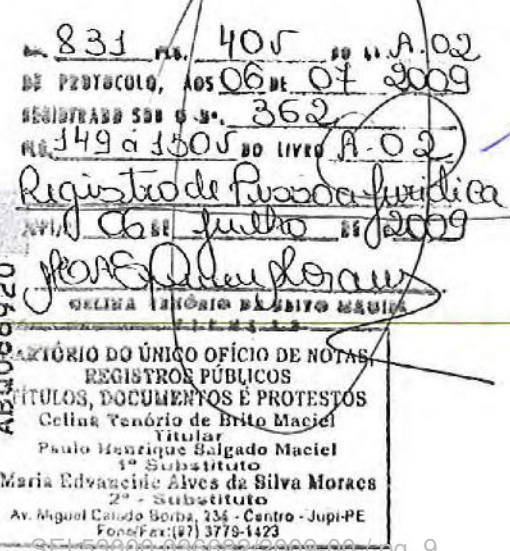 831 FLS. 405 DO L. A.02
DE PROTOCOLO, AOS 06 DE 07 2009
REGISTRADO SOB O Nº. 362
FLS. 149 a 150v DO LIVRO A-02
Registro de Pessoa Jurídica
JUPI, 06 DE Julho DE 2009
CELINA TENÓRIO DE BRITO MACIEL
CARTÓRIO DO ÚNICO OFÍCIO DE NOTAS,
REGISTROS PÚBLICOS
TÍTULOS, DOCUMENTOS E PROTESTOS
Celina Tenório de Brito Maciel
Titular
Paulo Henrique Salgado Maciel
1º Substituto
Maria Edvaneide Alves da Silva Moraes
2º - Substituto
Av. Miguel Calado Borba, 236 - Centro - Jupi-PE
Fone/Fax:(87) 3779-1423